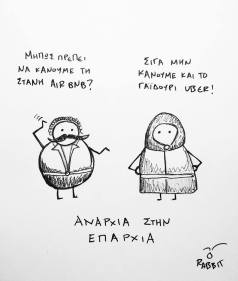 ΜΗΠΩΣ ΠΡΕΠΕΙ
ΝΑ ΚΑΝΟΥΜΕ ΤΗ
ΣΤΑΝΗ AIR BNB?
ΣΙΓΑ ΜΗΝ
ΚΑΝΟΥΜΕ ΚΑΙ ΤΟ
ΓΑΪΔΟΥΡΙ UBER!
ΑΝΑΡΧΙΑ ΣΤΗΝ
ΕΠΑΡΧΙΑ
RABBIT